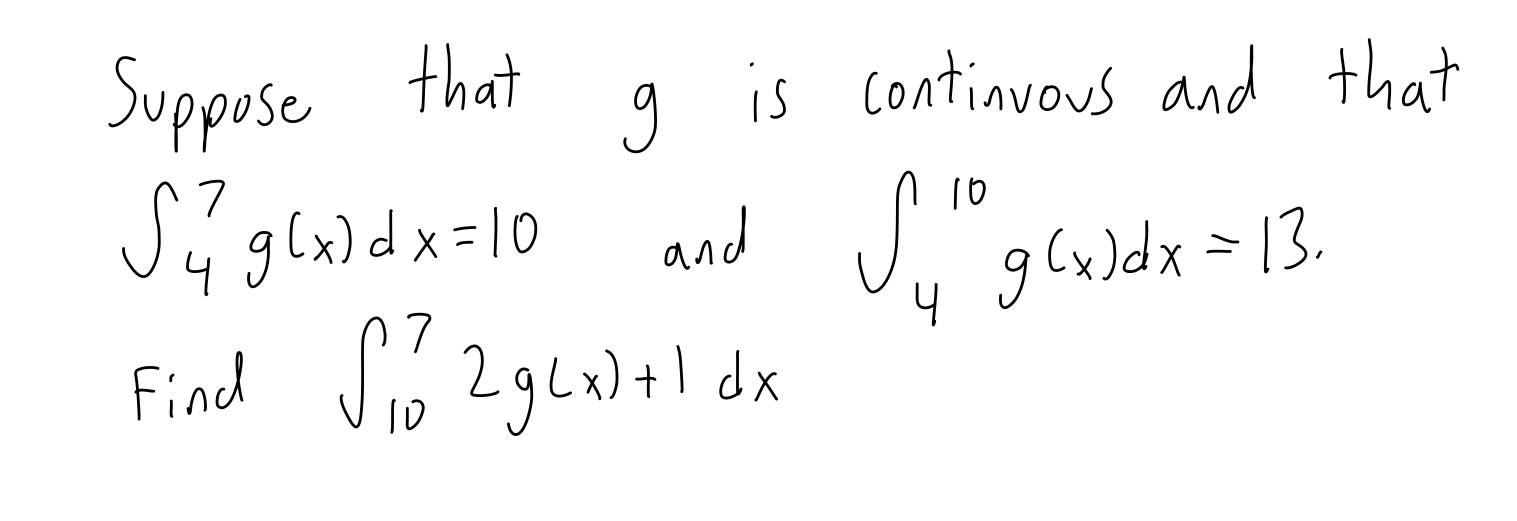 Suppose that g is continuous and that
∫₄⁷ g(x)dx=10 and ∫₄¹⁰ g(x)dx=13.
Find ∫₁₀⁷ 2g(x)+1 dx